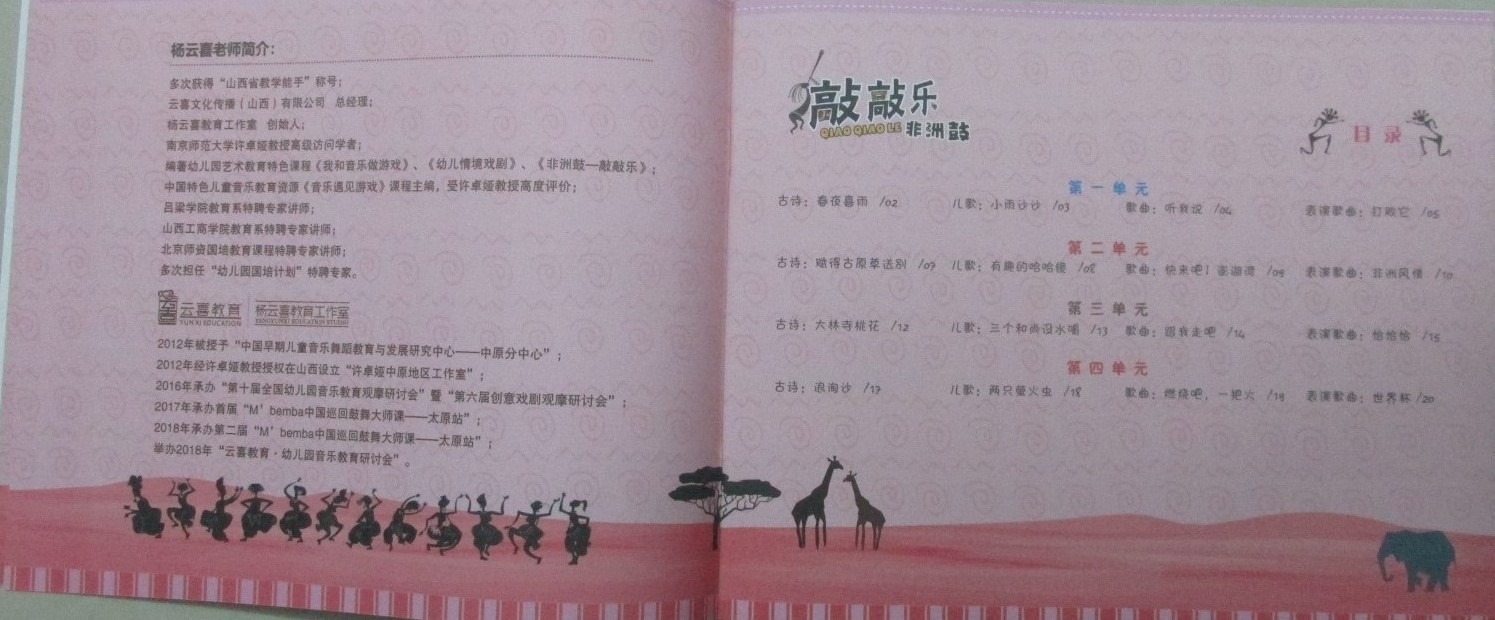 杨云喜老师简介：
多次获得“山西省教学能手”称号；
云喜文化传播（山西）有限公司 总经理；
杨云喜教育工作室 创始人；
南京师范大学许卓娅教授高级访问学者；
编著幼儿园艺术教育特色课程《我和音乐做游戏》、《幼儿情境戏剧》、《非洲鼓—敲敲乐》；
中国特色儿童音乐教育资源《音乐遇见游戏》课程主编，受许卓娅教授高度评价；
吕梁学院教育系特聘专家讲师；
山西工商学院教育系特聘专家讲师；
北京师资国培教育课程特聘专家讲师；
多次担任“幼儿园国培计划”特聘专家。
云喜教育 杨云喜教育工作室
YUN XI EDUCATION YANGYUNXI EDUCATION STUDIO
2012年被授予“中国早期儿童音乐舞蹈教育与发展研究中心——中原分中心”；
2012年经许卓娅教授授权在山西设立“许卓娅中原地区工作室”；
2016年承办“第十届全国幼儿园音乐教育观摩研讨会”暨“第六届创意戏剧观摩研讨会”；
2017年承办首届“M’bemba中国巡回鼓舞大师课——太原站”；
2018年承办第二届“M’bemba中国巡回鼓舞大师课——太原站”；
举办2018年“云喜教育·幼儿园音乐教育研讨会”。
敲敲乐
QIAO QIAO LE 非洲鼓
目录
第一单元
古诗：春夜喜雨 /02 儿歌：小雨沙沙 /03 歌曲：听我说 /04 表演歌曲：打败它 /05
第二单元
古诗：赋得古原草送别 /07 儿歌：有趣的哈哈镜 /08 歌曲：快来吧！澎湖湾 /09 表演歌曲：非洲风情 /10
第三单元
古诗：大林寺桃花 /12 儿歌：三个和尚没水喝 /13 歌曲：跟我走吧 /14 表演歌曲：恰恰恰 /15
第四单元
古诗：浪淘沙 /17 儿歌：两只萤火虫 /18 歌曲：燃烧吧，一把火 /19 表演歌曲：世界杯 /20